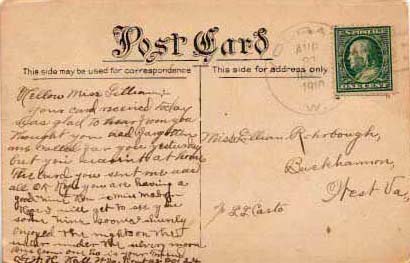 Post Card
This side may be used for correspondence
This side for address only
AUG
1910
W.
U.S. POSTAGE
ONE CENT
Hellow Miss Lillian:
Your card received today
was glad to hear from you
thought you had forgotten
me called for you yesterday
but you wasn't at home
the card you sent me was
all OK. Hope you are having a
good time
will get to see you
soon
enjoyed the nights on the
under the silvery moon
Miss Lillian Rohrbough,
Buckhannon,
West Va,
% L L Casto